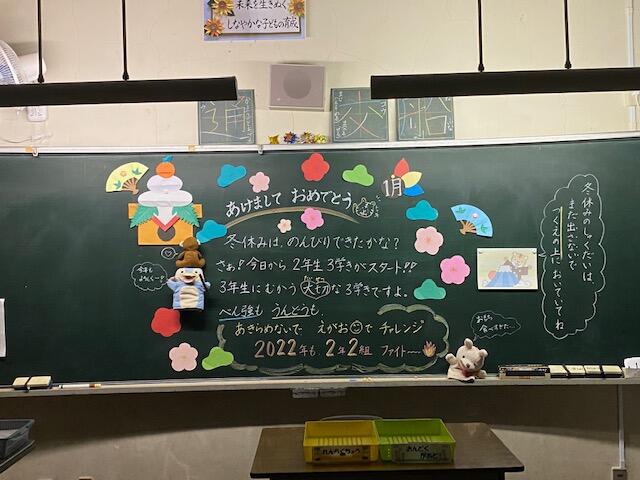 未来を生きぬく
しなやかな子どもの育成
あけまして おめでとう
1月
冬休みは、のんびりできたかな？
さぁ！今日から 2年生 3学きがスタート！！
3年生にむかう 大切な 3学きですよ。
べん強も うんどうも、
あきらめないで えがおで チャレンジ
2022年も 2年2組 ファイト〜
今年も
よろしく〜！
冬休みのしゅくだいは、
まだ出さないで
つくえの上においていてね
おもち
食べすぎた…
れんらくちょう
おんどく
カード